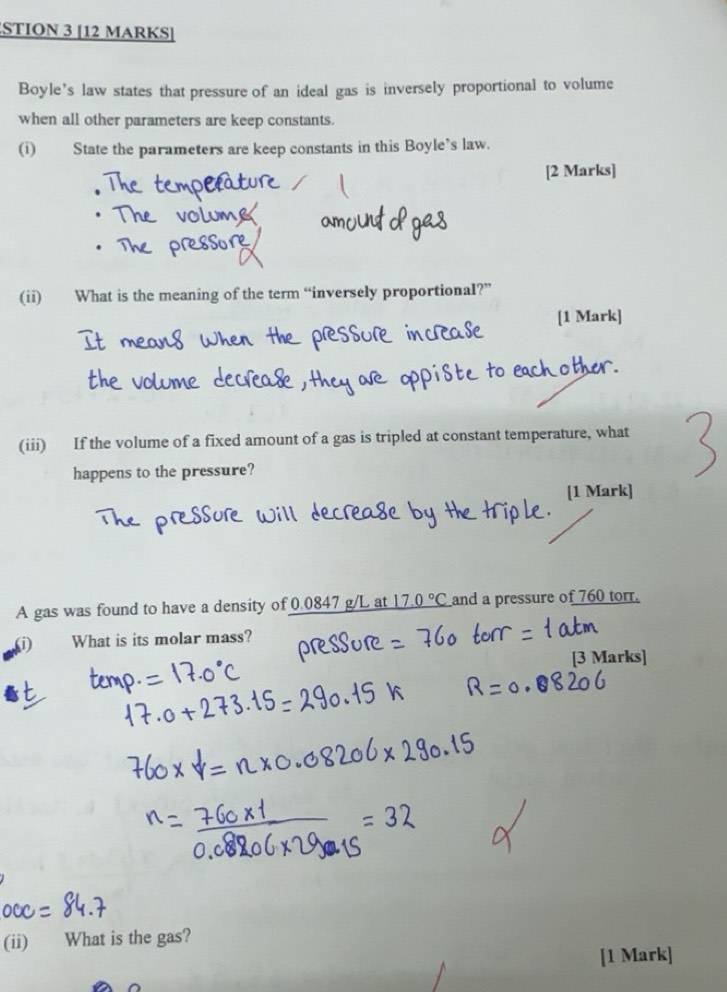 STION 3 [12 MARKS]
Boyle's law states that pressure of an ideal gas is inversely proportional to volume
when all other parameters are keep constants.
(i) State the parameters are keep constants in this Boyle's law.
[2 Marks]
. The temperature 1
• The volume
• The pressure
amount of gas
(ii) What is the meaning of the term "inversely proportional?"
[1 Mark]
It means when the pressure increase
the volume decrease, they are oppiste to each other.
3
(iii) If the volume of a fixed amount of a gas is tripled at constant temperature, what
happens to the pressure?
[1 Mark]
The pressure will decrease by the triple.
A gas was found to have a density of 0.0847 g/L at 17.0 °C and a pressure of 760 torr.
(i) What is its molar mass? pressure = 760 torr = 1 atm
[3 Marks]
temp. = 17.0°C
17.0+273.15 = 290.15 K R = 0.08206
760 x 1 = n x 0.08206 x 290.15
n = 760 x 1 = 32
0.08206 x 290.15
000 = 84.7
(ii) What is the gas?
[1 Mark]